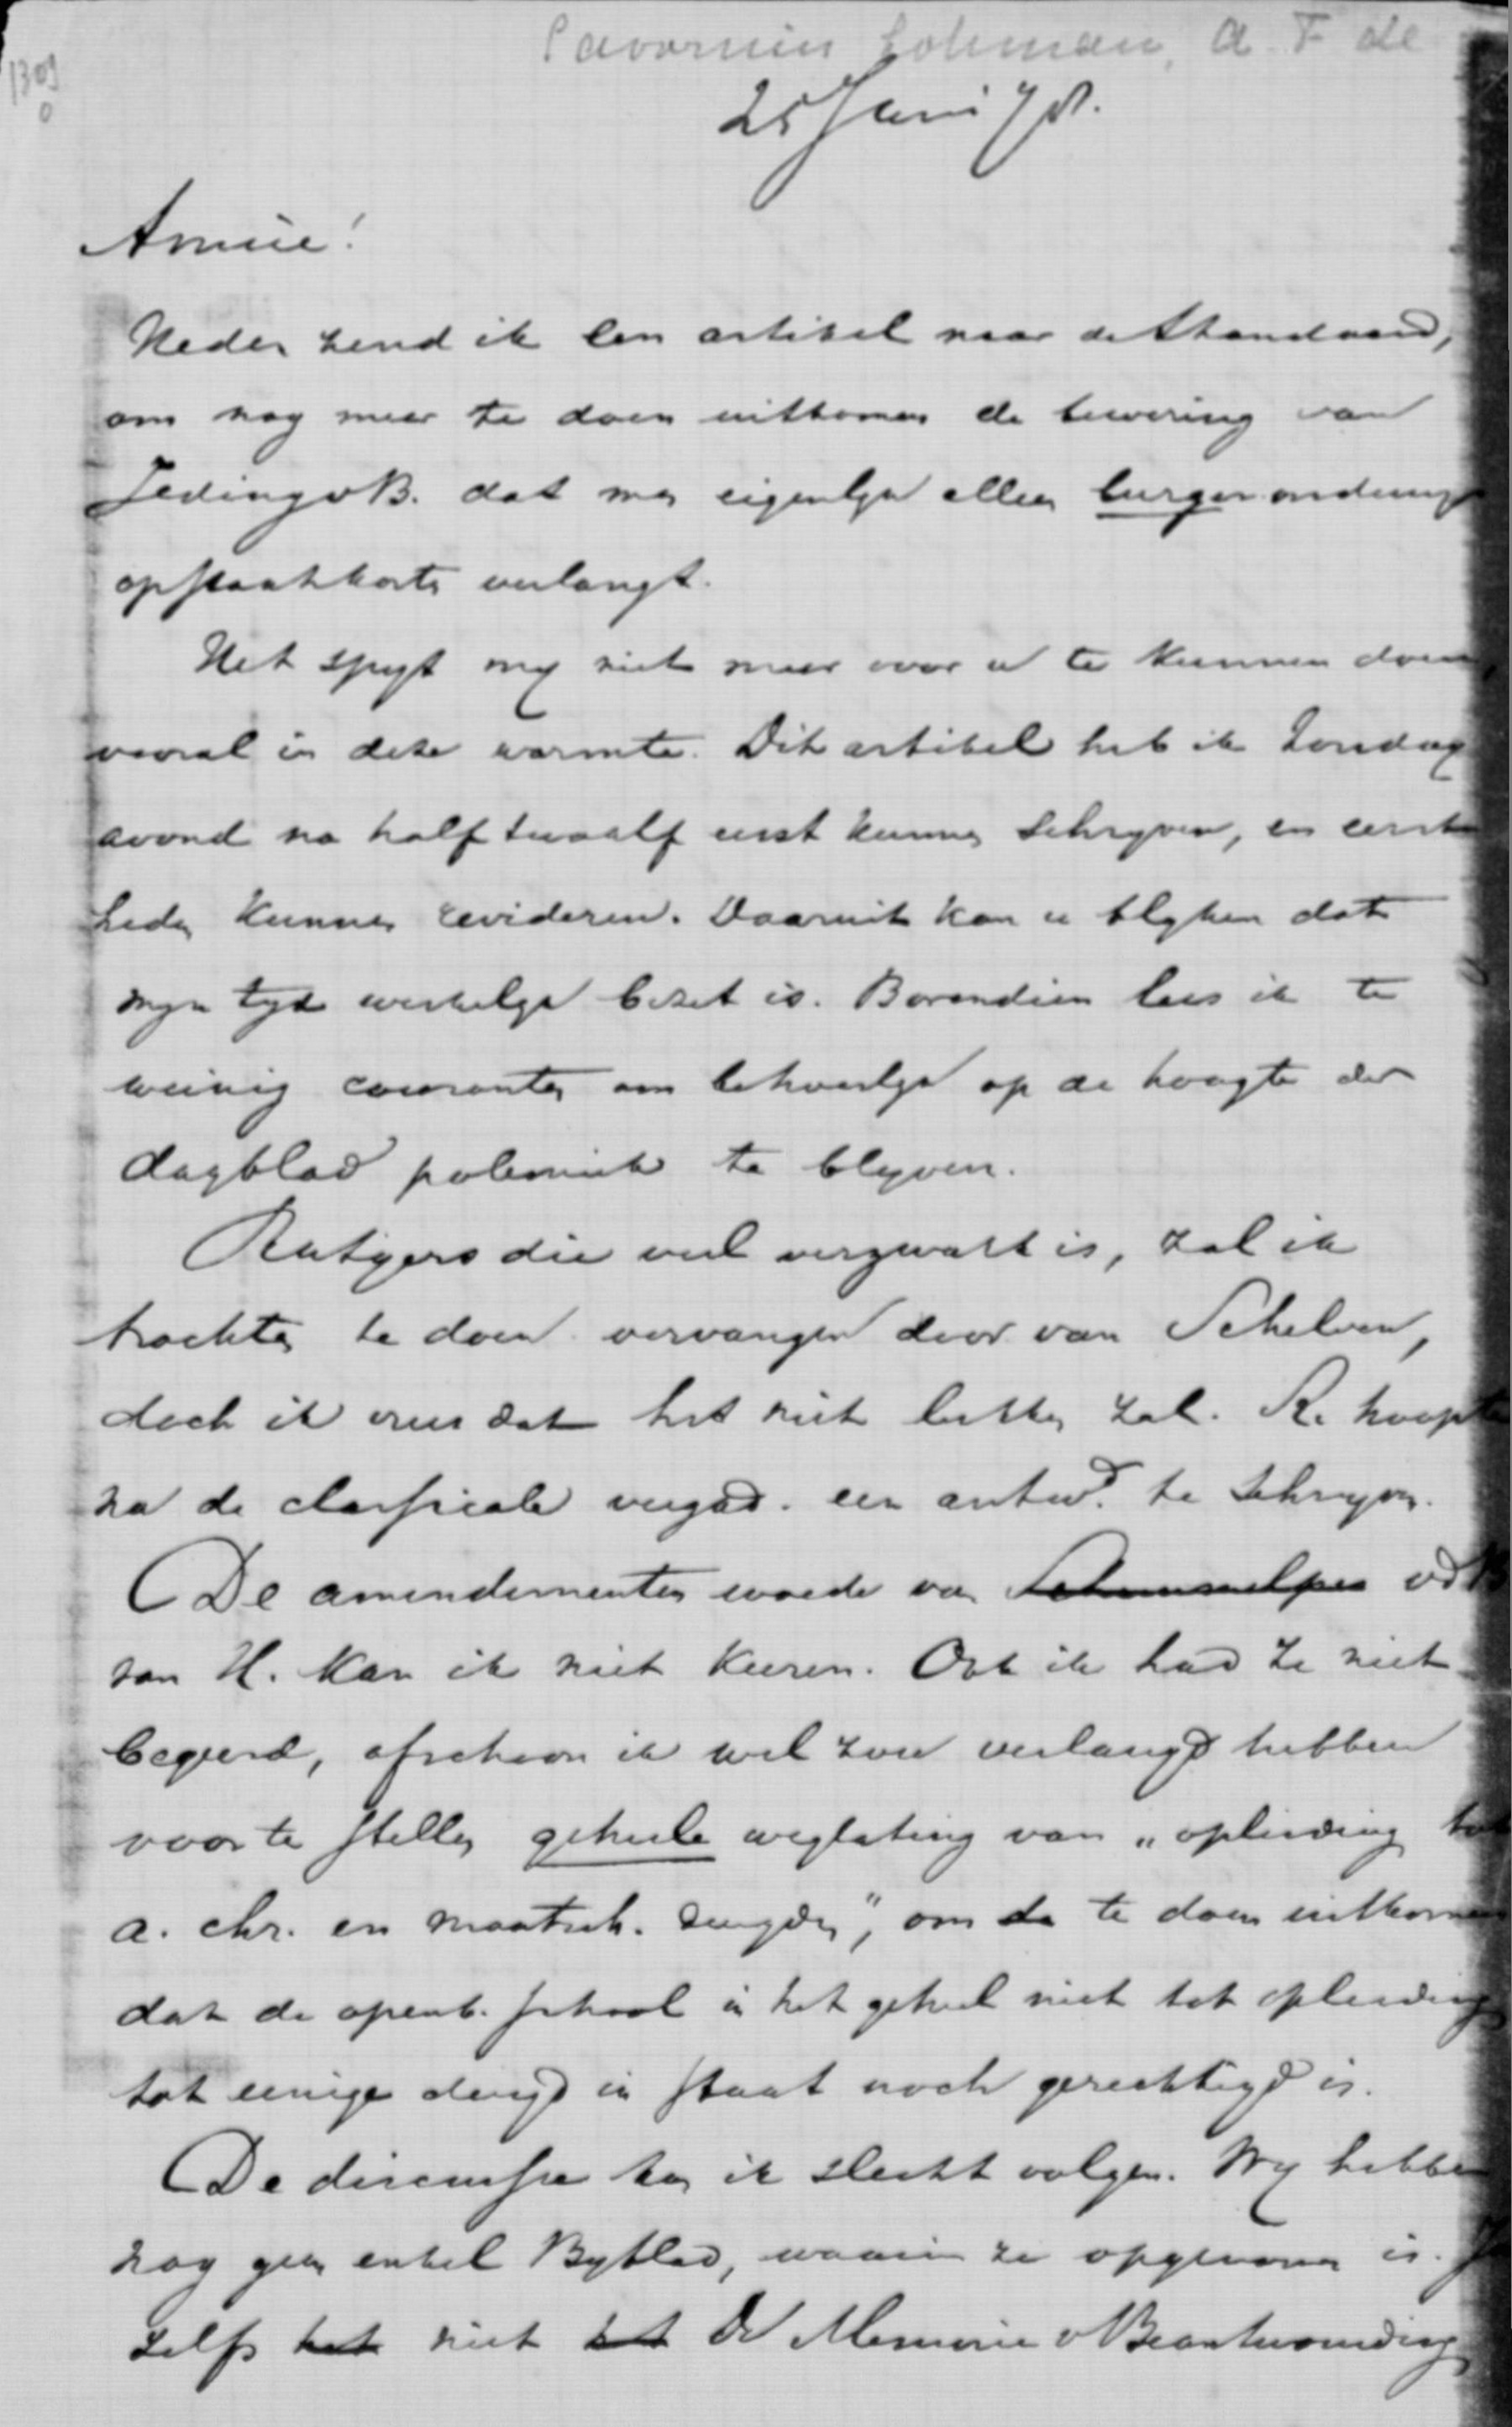 1309
0
Savornin Lohman, A. F. de
25 Juni 78.
Amice!
Heden zend ik een artikel naar de Standaard,
om nog meer te doen uitkomen de bewering van
Jeding v B. dat men eigenlyk alleen burger
op staatskosten verlangt.
Het spyt my niet meer voor u te kunnen doen,
vooral in deze warmte. Dit artikel heb ik Zondag
avond na half twaalf eerst kunnen schryven, en eerst
heden kunnen revideren. Daaruit kan u blyken dat
myn tyd werkelyk bezet is. Bovendien lees ik te
weinig couranten om behoorlyk op de hoogte der
dagblad polemiek te blyven.
Rutgers die veel verzwakt is, zal ik
trachten te doen vervangen door van Schelven,
doch ik vrees dat het niet lukken zal. R. hoopte
na de classicale vergad. een antwd. te schryven.
De amendementen van
van H. kan ik niet keeren. Ook ik had ze niet
begeerd, ofschoon ik wel zou verlangd hebben
voor te stellen geheele weglating van „opleiding tot
a. chr. en maatsch. deugden", om te doen uitkomen
dat de openb. school in het geheel niet tot opleiding
tot eenige deugd in staat noch gerechtigd is.
De discussie kan ik slecht volgen. Wy hebben
nog geen enkel Byblad, waarin ze opgenomen is.
Zelfs niet de Memorie v Beantwoording